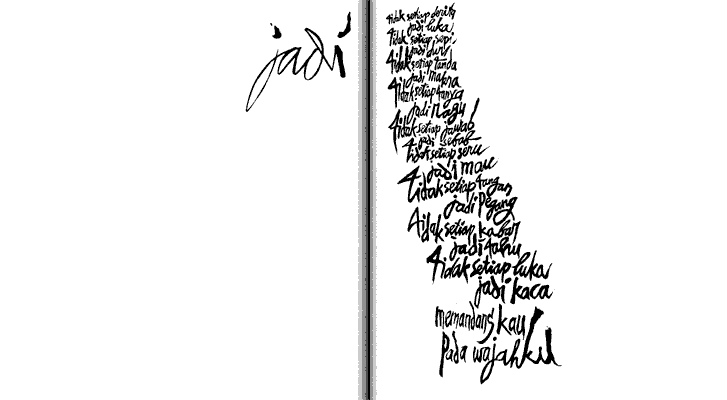 jadi
tidak setiap derita
jadi luka
tidak setiap sepi
jadi duri
tidak setiap tanda
jadi makna
tidak setiap tanya
jadi ragu
tidak setiap jawab
jadi sebab
tidak setiap seru
jadi mau
tidak setiap tangan
jadi pegang
tidak setiap kabar
jadi tahu
tidak setiap luka
jadi kaca
memandang kau
pada wajahku